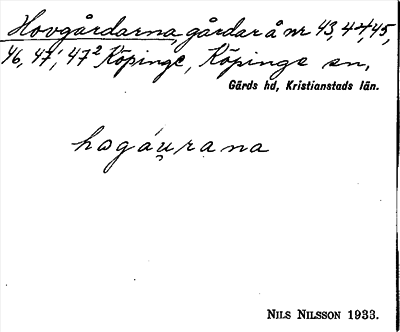 Hovgårdarna, gårdar å nr 43, 44, 45,
46, 47¹, 47² Köpinge, Köpinge sn,
Gärds hd, Kristianstads län.
hogáu̯rana
NILS NILSSON 1933.